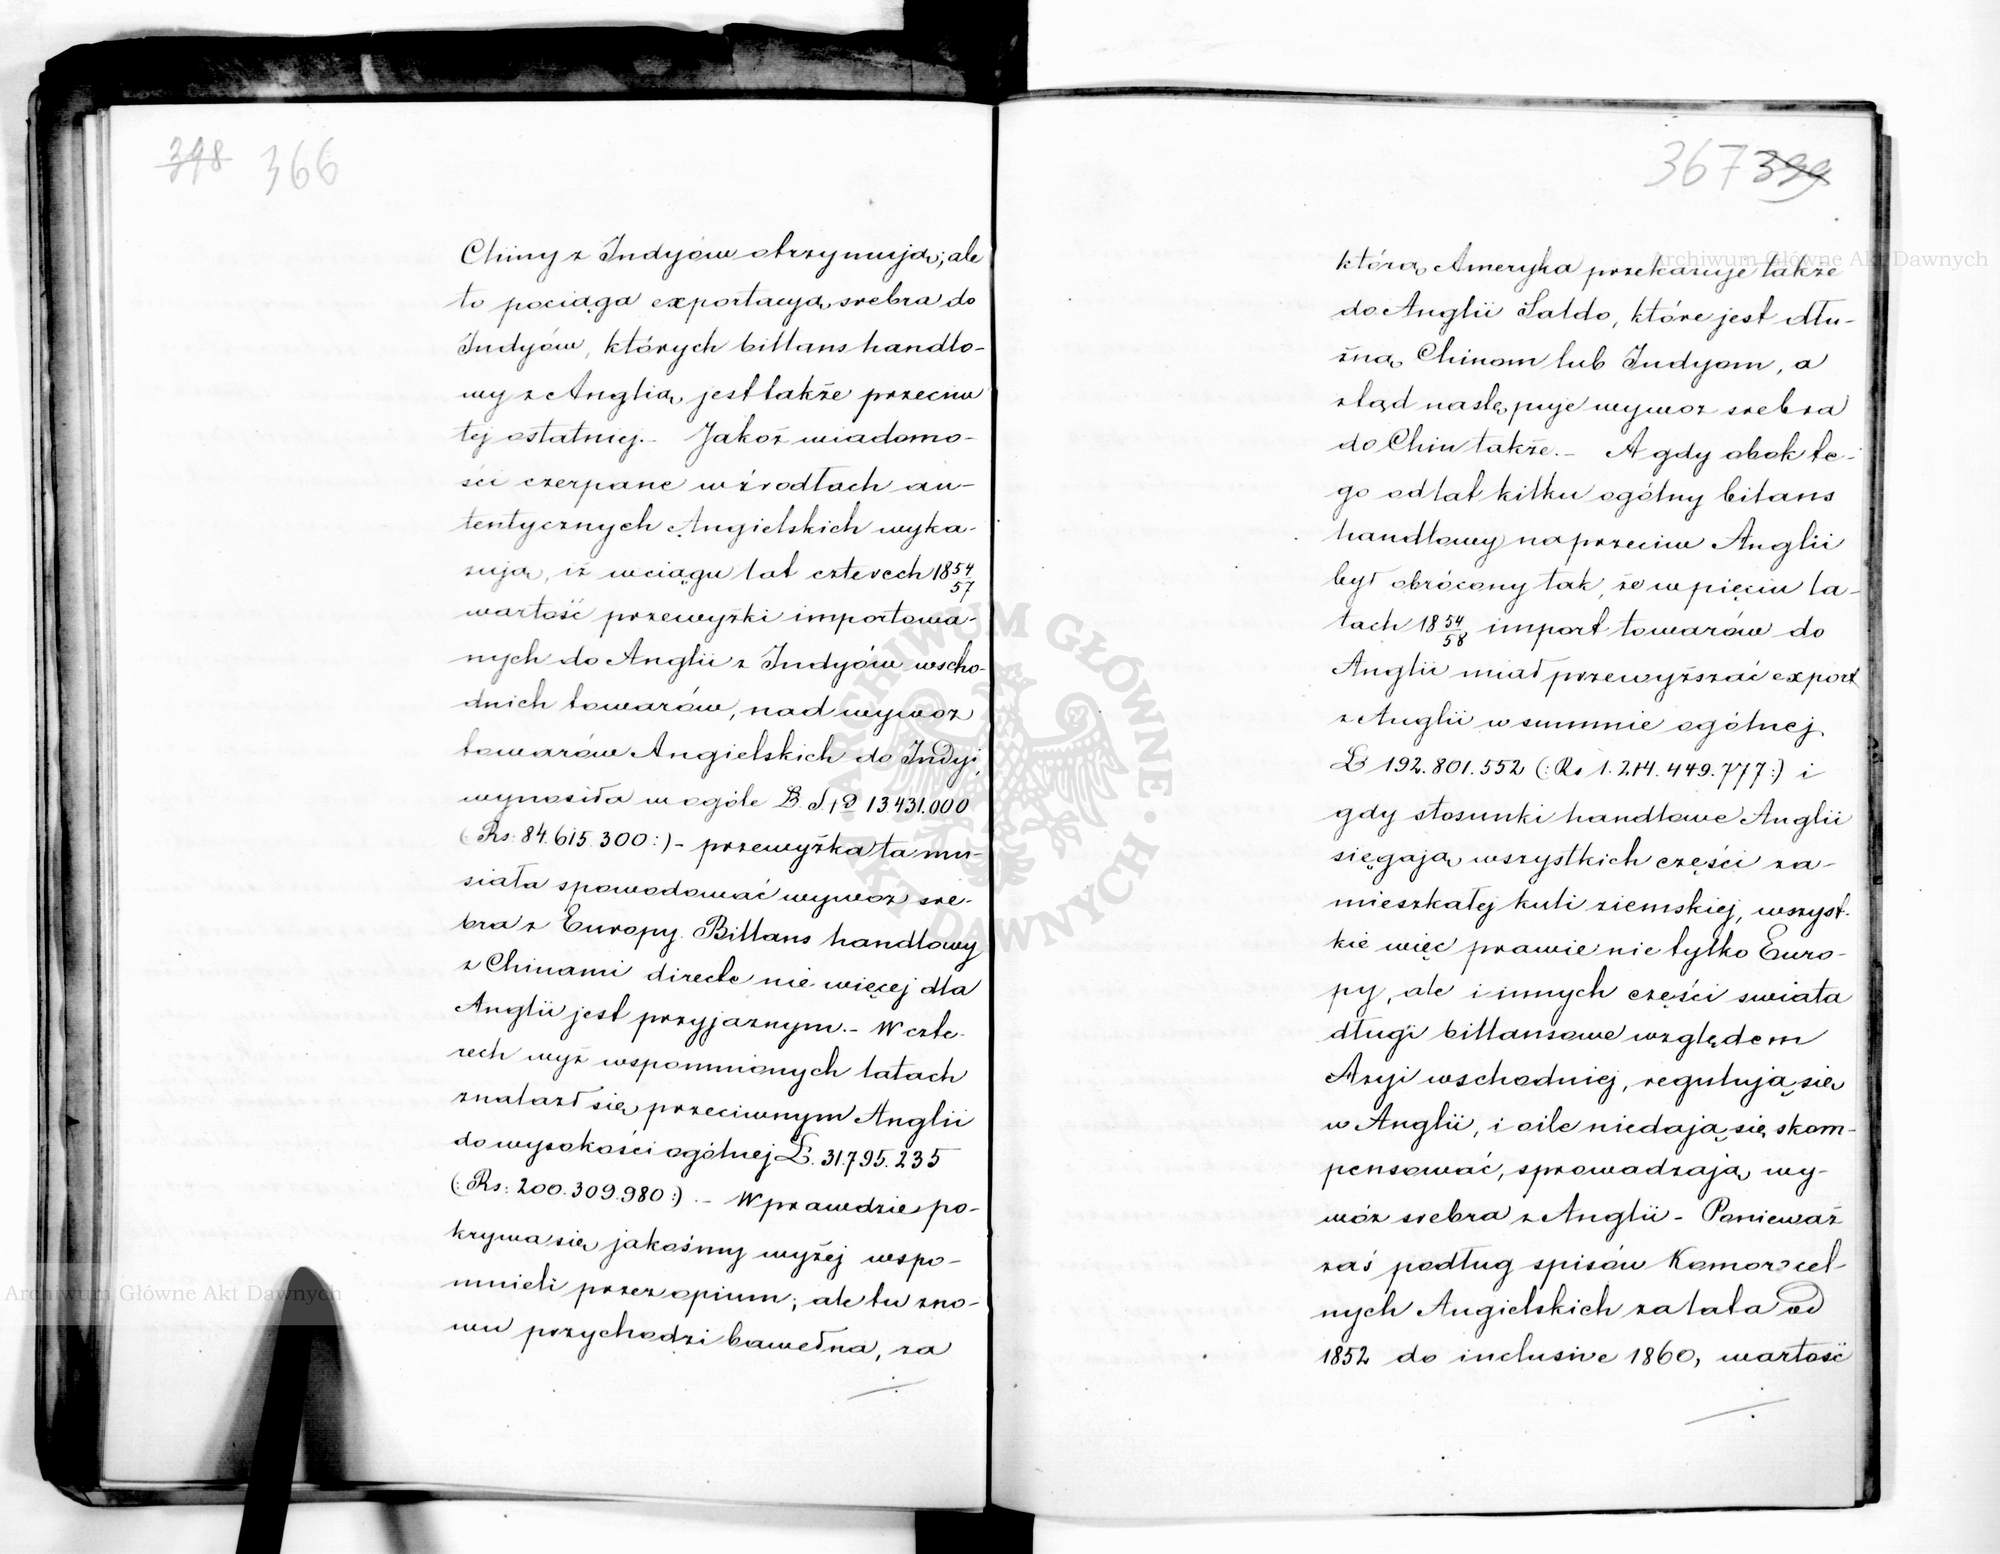 398 366
Chiny z Indyów otrzymują; ale
to pociąga exportacyą srebra do
Indyów, których billans handlo-
wy z Anglią jest także przeciw
tej ostatniej.- Jakoż wiadomo-
ści czerpane w źrodłach au-
tentycznych Angielskich wyka-
zują, iż wciągu lat czterech 18 54/57
wartość przewyżki importowa-
nych do Anglii z Indyów wscho-
dnich towarów, nad wywoz
towarów Angielskich do Indyi,
wynosiła w ogóle £. St^d 13.431.000
(:Rs: 84.615.300:) - przewyżka ta mu-
siała spowodować wywoz sre-
bra z Europy. Billans handlowy
z Chinami directe nie więcej dla
Anglii jest przyjaznym.- W czte-
rech wyż wspomnionych latach
znalazł się przeciwnym Anglii
do wysokości ogólnej £. 31.795.235
(:Rs: 200.309.980:) .- Wprawdzie po-
krywa się jakośmy wyżej wspo-
mnieli przez opium; ale tu zno-
wu przychodzi bawełna, za
367 399
którą Ameryka przekazuje także
do Anglii Saldo, które jest dłu-
żną Chinom lub Indyom, a
ztąd następuje wywoz srebra
do Chin także.- A gdy obok te-
go od lat kilku ogólny bilans
handlowy naprzeciw Anglii
był obrócony tak, że w pięciu la-
tach 18 54/58 import towarów do
Anglii miał przewyższać export
z Anglii w summie ogólnej
£ 192.801.552 (:Rs 1.214.449.777:) i
gdy stosunki handlowe Anglii
sięgają wszystkich części za-
mieszkałej kuli ziemskiej, wszyst-
kie więc prawie nie tylko Euro-
py, ale i innych części swiata
długi billansowe względem
Azyi wschodniej, regulują się
w Anglii, i oile niedają się skom-
pensować, sprowadzają wy-
wóz srebra z Anglii - Ponieważ
zaś podług spisów Komor cel-
nych Angielskich za lata od
1852 do inclusive 1860, wartość
Archiwum Główne Akt Dawnych
Archiwum Główne Akt Dawnych
ARCHIWUM GŁÓWNE AKT DAWNYCH